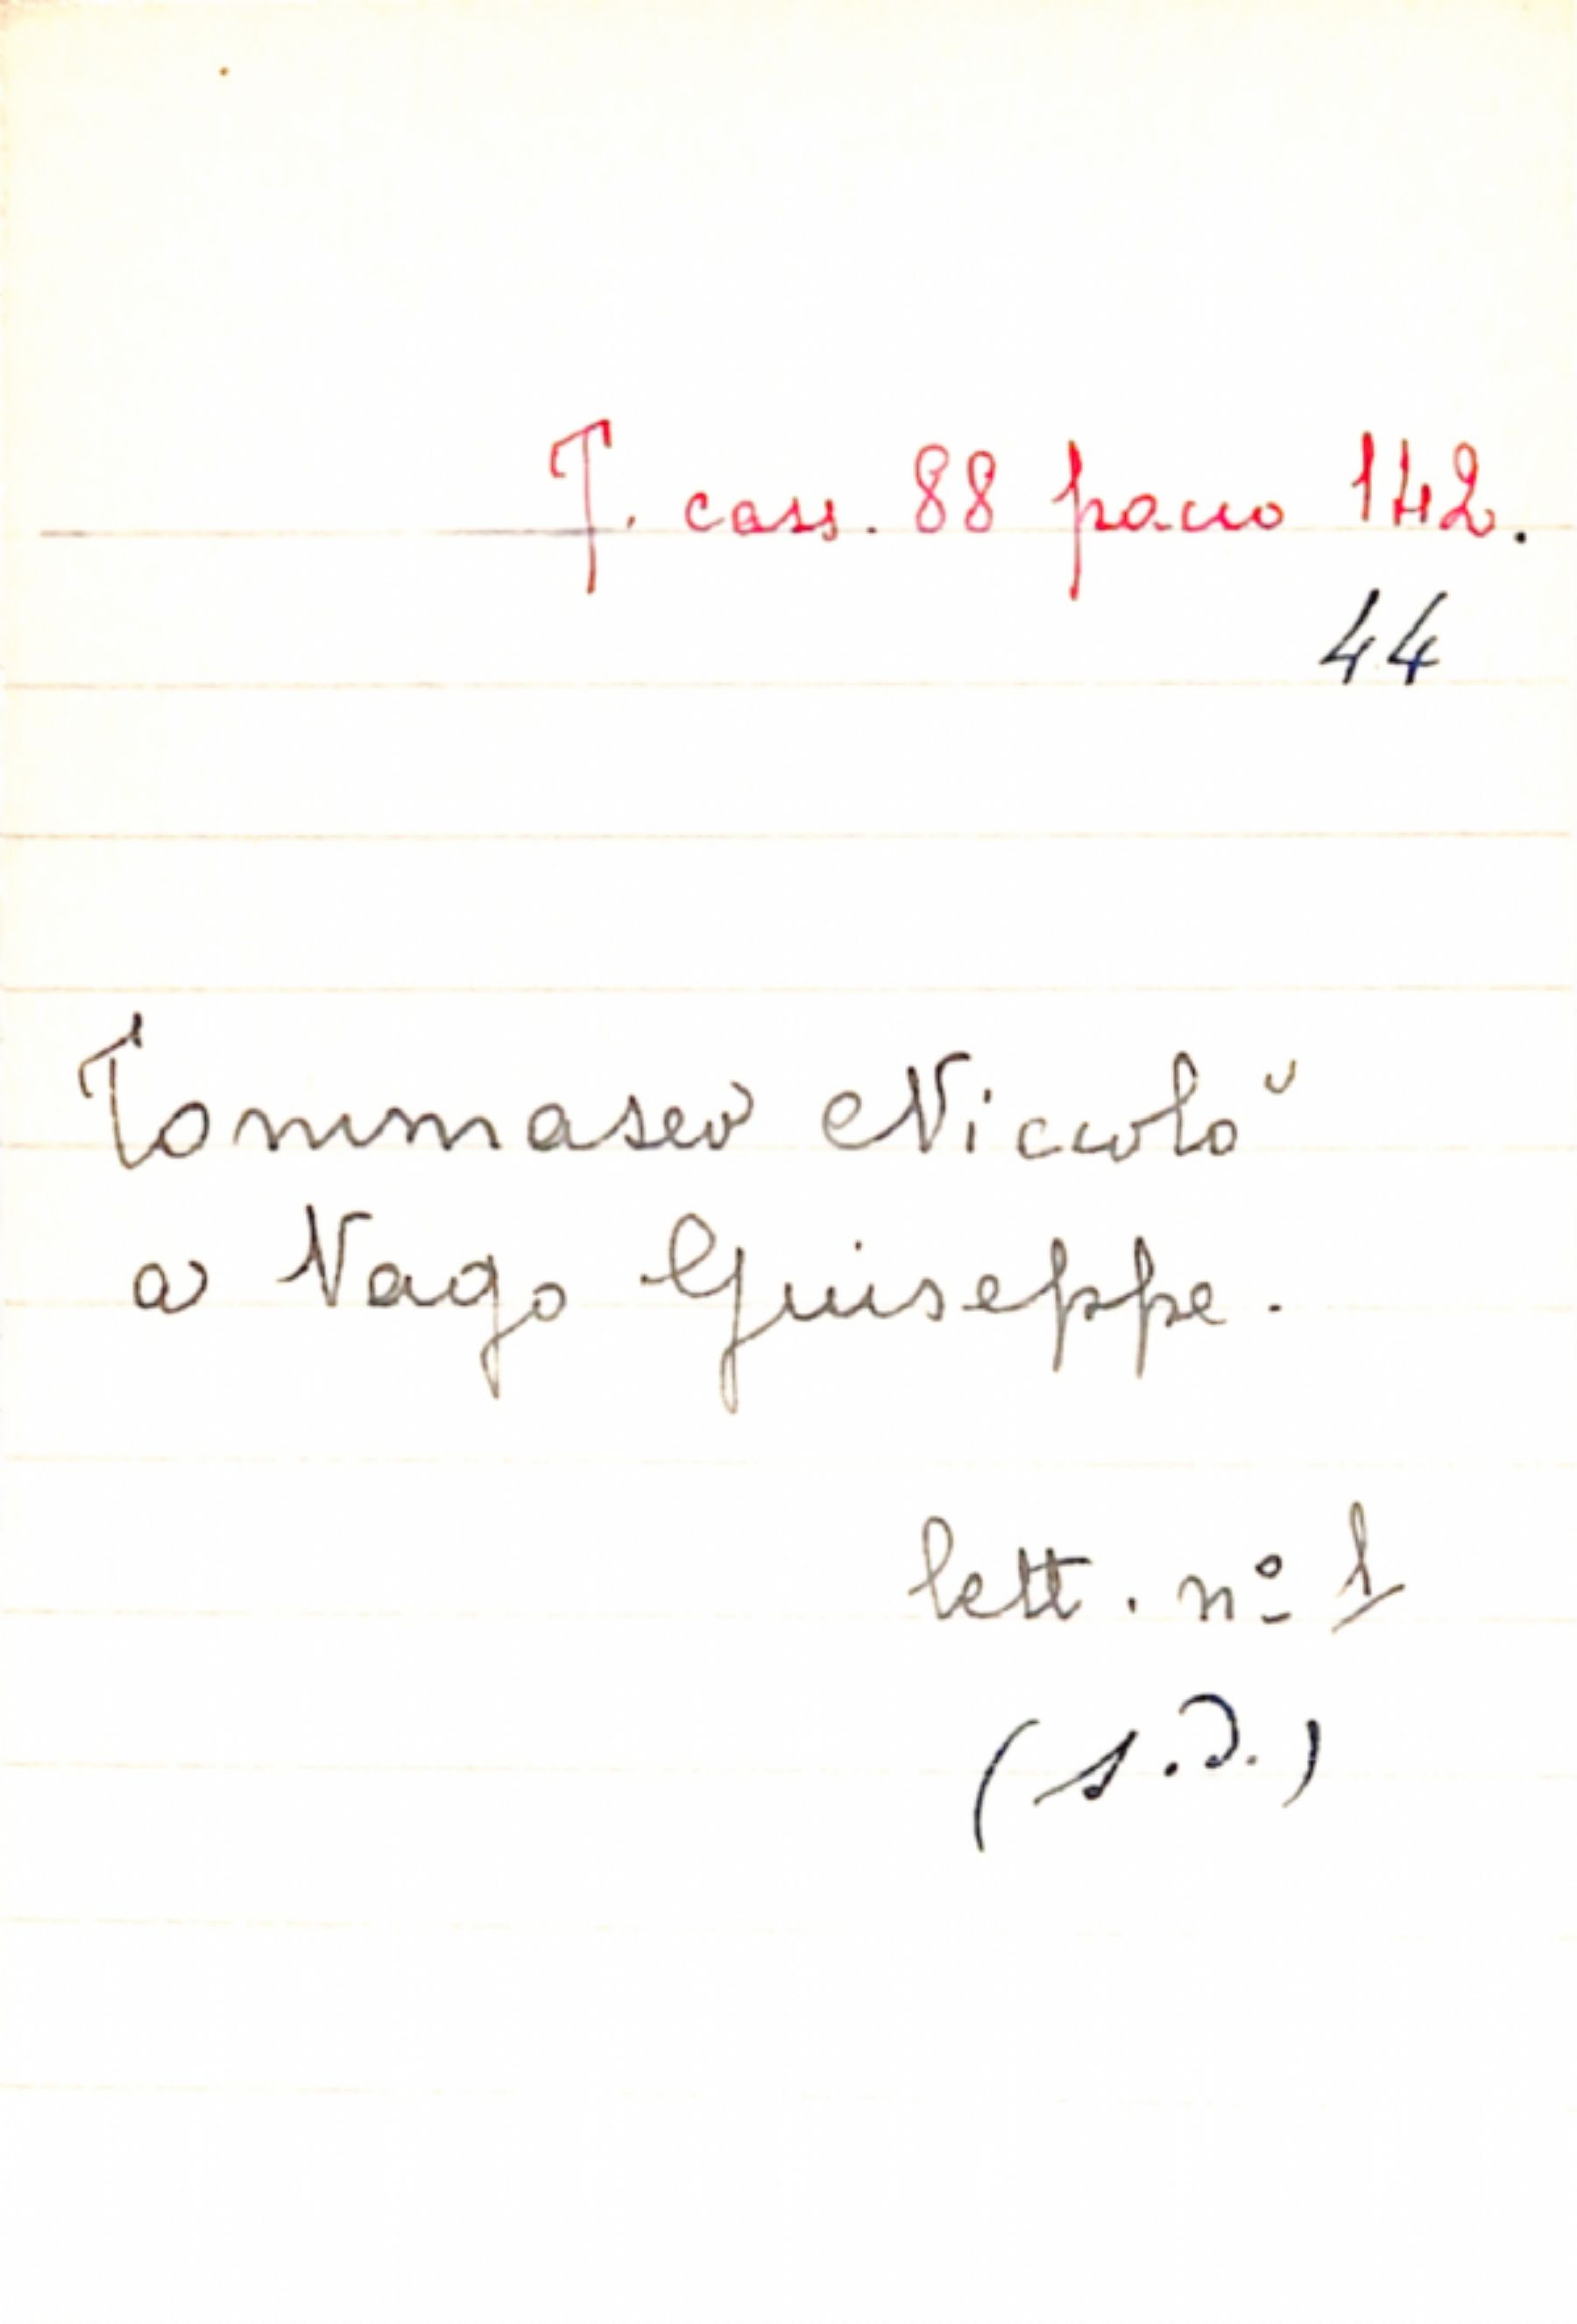 T. cass. 88 pacco 142.
44
Tommaseo Niccolò
a Vago Giuseppe.
lett. nº 1
(s.d.)